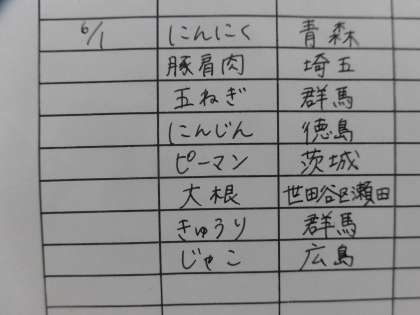 6/1 にんにく 青森
豚肩肉 埼玉
玉ねぎ 群馬
にんじん 徳島
ピーマン 茨城
大根 世田谷区瀬田
きゅうり 群馬
じゃこ 広島